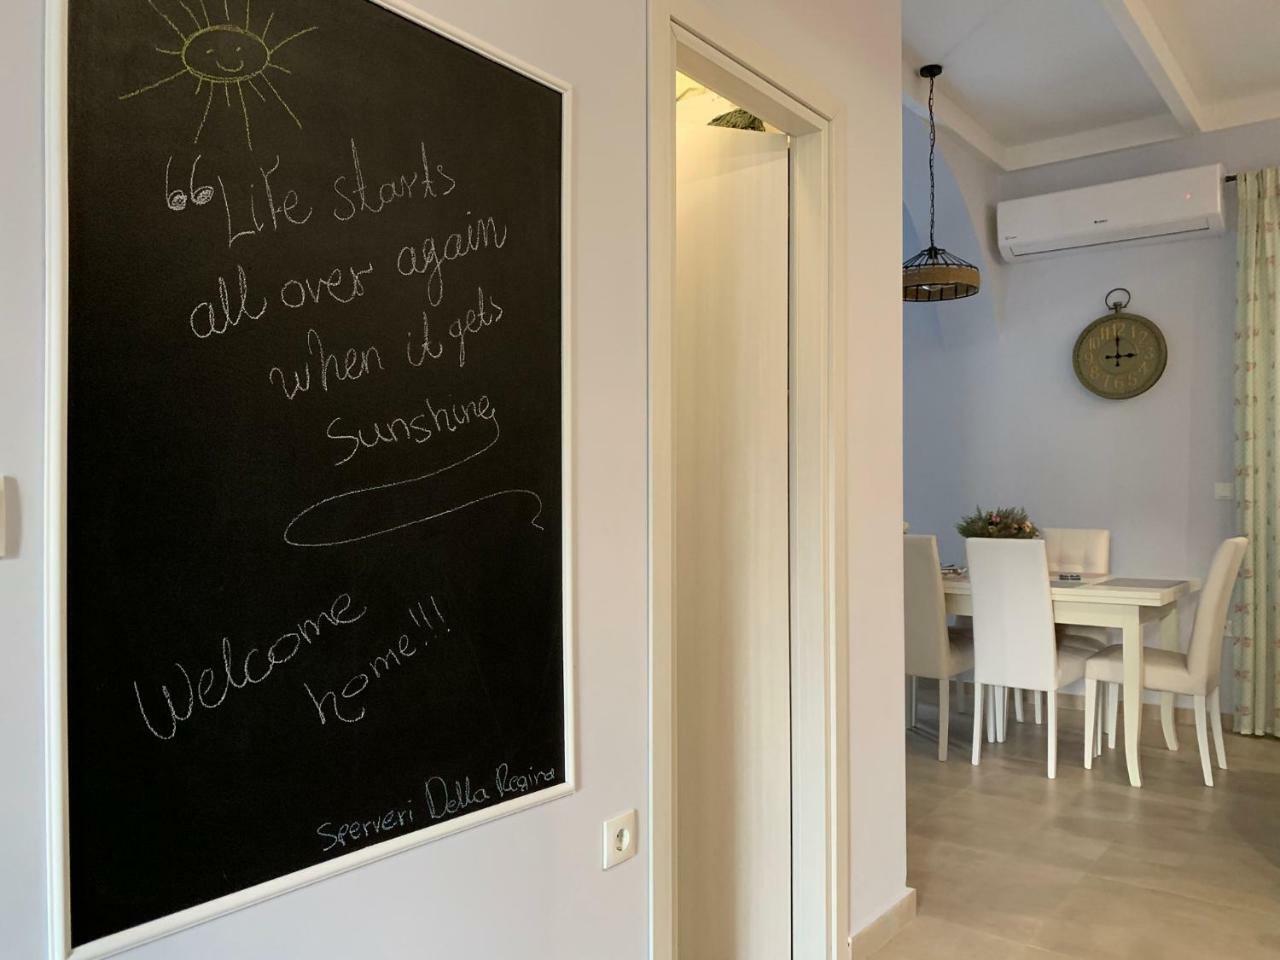 “Life starts
all over again
when it gets
sunshine
Welcome
home!!!
Sperveri Della Regina
11 12 1
10 2
9 3
8 4
7 6 5